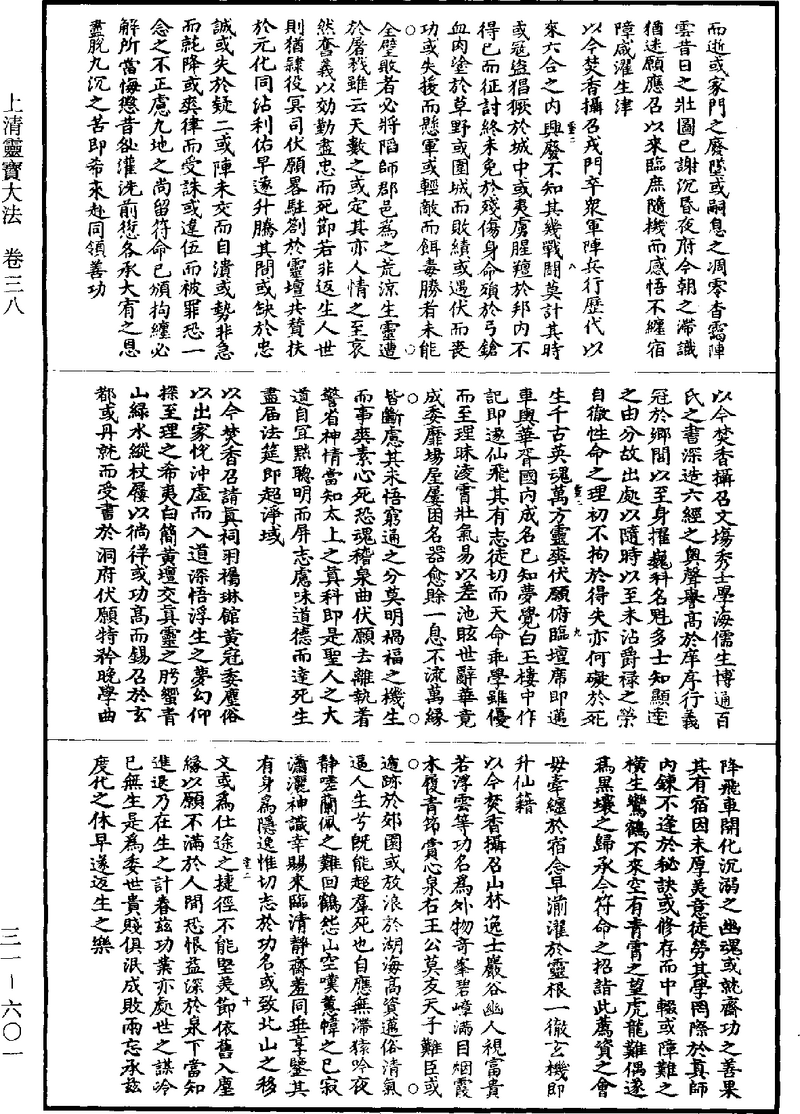 上清靈寶大法　卷三八
三一－六〇一
而逝或家門之廢墜或嗣息之凋零杳靄陣
雲昔日之壯圖已謝沉昏夜府今朝之滯識
猶迷願應召以來臨庶隨機而感悟不纏宿
障咸濯生津
以今焚香攝召戎門卒眾軍陣兵行歷代以
來六合之內興廢不知其幾戰鬪莫計其時
或冦盜猖獗於城中或夷虜腥羶於邦內不
得已而征討終未免於殘傷身命殞於弓鎗
血肉塗於草野或圍城而敗績或遇伏而喪
功或失援而懸軍或輕敵而餌毒勝者未能
全璧敗者必將陷師郡邑為之荒涼生靈遭
於屠戮雖云天數之或定其亦人情之至哀
然奮義以効勤盡忠而死節若非返生人世
則猶隸役冥司伏願畧駐劄於靈壇共贊扶
於元化同沾利佑早遂升騰其間或缺於忠
誠或失於疑二或陣未交而自潰或勢非急
而就降或爽律而受誅或違伍而被罪恐一
念之不正慮九地之尚留符命已頒拘纏必
解所當悔懲昔釁灌洗前愆各承大宥之恩
盡脫九沉之苦即希來赴同領善功
以今焚香攝召文場秀士學海儒生博通百
氏之書深造六經之奧聲譽高於庠序行義
冠於鄉閭以至身擢巍科名魁多士知顯達
之由分故出處以隨時以至未沾爵祿之榮
自徹性命之理初不拘於得失亦何礙於死
生千古英魂萬方靈爽伏願俯臨壇席即邁
車輿華胥國內成名已知夢覺白玉樓中作
記即遂仙飛其有志徒切而天命乖學雖優
而至理昧凌霄壯氣易以差池眩世辭華竟
成委靡場屋屢困名器愈賒一息不流萬緣
皆斷慮其未悟窮通之分莫明禍福之機生
而事爽素心死恐魂稽泉曲伏願去離執着
警省神情當知太上之真科即是聖人之大
道自宜黜聰明而屏志慮味道德而達死生
盡屆法筵即超淨域
以今焚香召請真祠羽褐琳館黃冠委塵俗
以出家悅沖虛而入道深悟浮生之夢幻仰
探至理之希夷白簡黃壇交真靈之肹蠁青
山綠水縱杖屨以徜徉或功高而錫召於玄
都或丹就而受書於洞府伏願特矜晚學曲
降飛車開化沉溺之幽魂或就齋功之善果
其有宿因未厚美意徒勞其學罔際於真師
內鍊不逢於祕訣或修存而中輟或障難之
橫生鸞鶴不來空有青霄之望虎龍難偶遂
為黑壤之歸承今符命之招詣此薦資之會
毋牽纏於宿念早湔濯於靈根一徹玄機即
升仙籍
以今焚香攝召山林逸士巖谷幽人視富貴
若浮雲等功名為外物奇峯碧嶂滿目烟霞
木履青笻賞心泉石王公莫友天子難臣或
遁跡於郊園或放浪於湖海高資邁俗清氣
逼人生兮既能超羣死也自應無滯猿吟夜
靜嗟蘭佩之難回鶴怨山空嘆蕙幃之已寂
瀟灑神識幸賜來臨清靜齋羞同垂享鑒其
有身為隱逸惟切志於功名或致北山之移
文或為仕途之捷徑不能堅美節依舊入塵
緣以願不滿於人間恐恨益深於泉下當知
進退乃在生之計眷茲功業亦處世之謀吟
已無生是為委世貴賤俱泯成敗兩忘承茲
度化之休早遂返生之樂